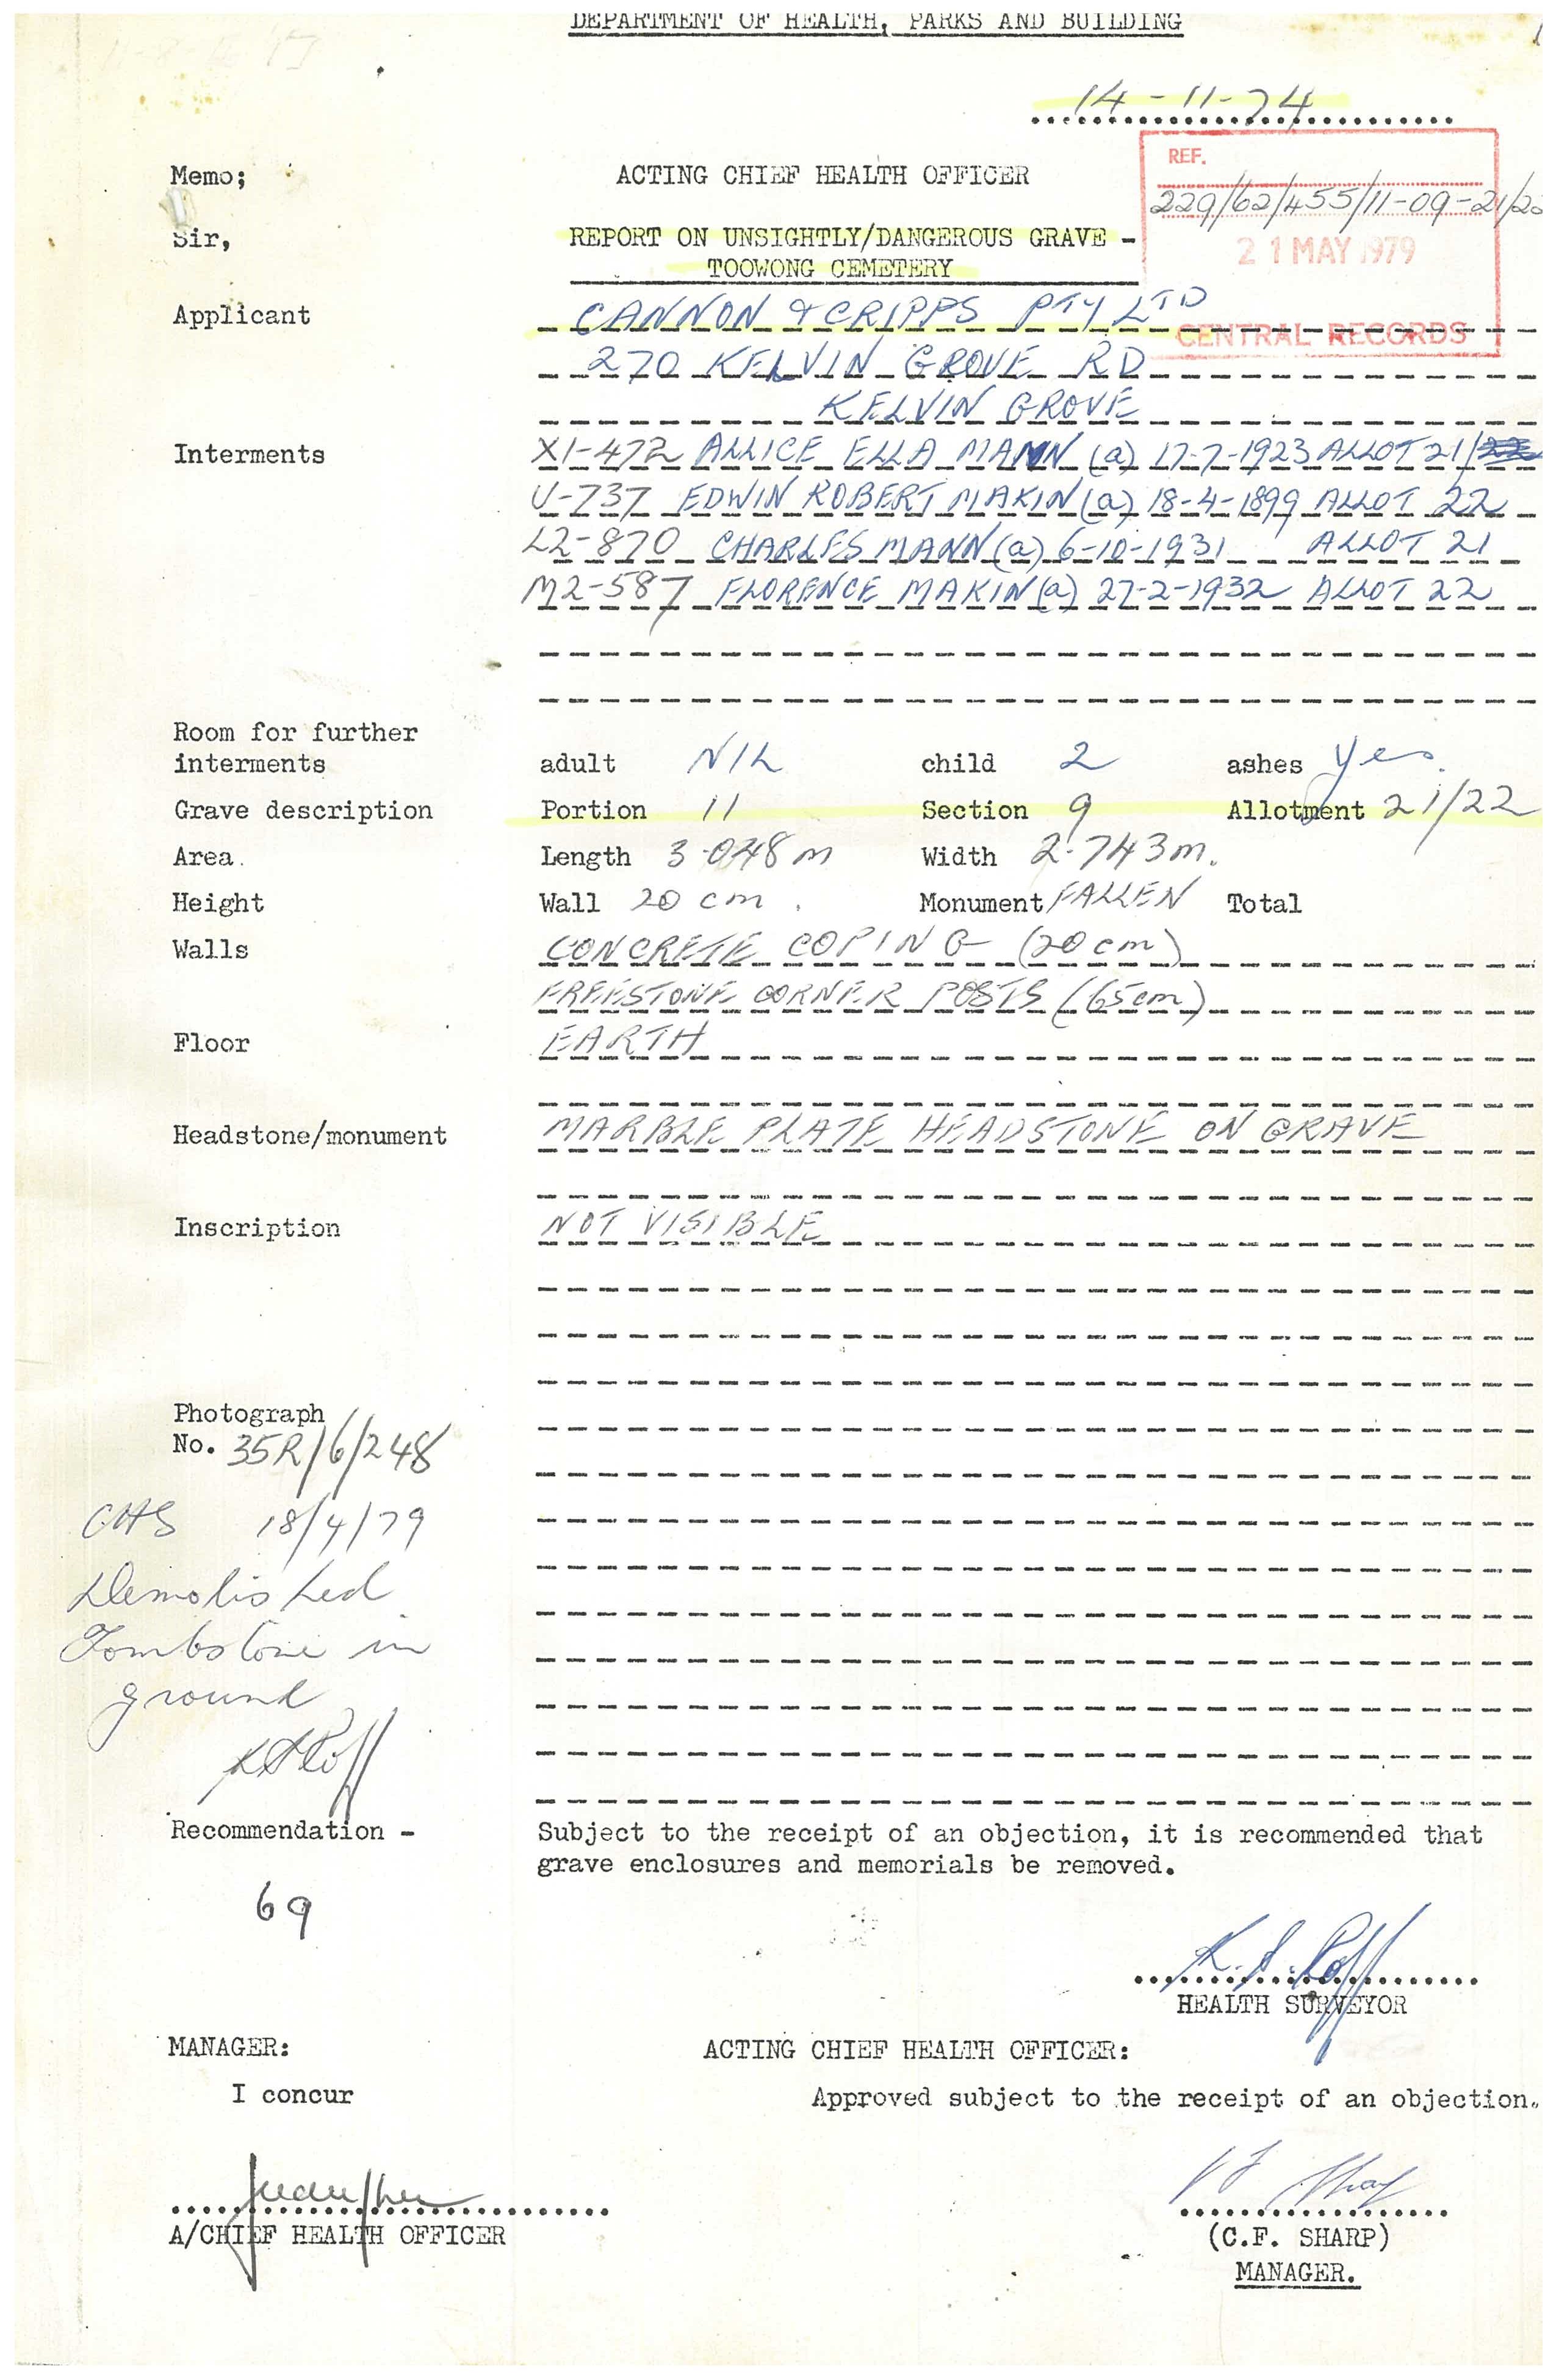 DEPARTMENT OF HEALTH, PARKS AND BUILDING
14-11-74
Memo;
ACTING CHIEF HEALTH OFFICER
REF.
229/62/455/11-09-21/22
Sir,
REPORT ON UNSIGHTLY/DANGEROUS GRAVE -
TOOWONG CEMETERY
21 MAY 1979
CENTRAL RECORDS
Applicant
CANNON & CRIPPS PTY LTD
270 KELVIN GROVE RD
KELVIN GROVE
Interments
X1-472 ALLICE ELLA MANN (a) 17-7-1923 ALLOT 21/
U-737 EDWIN ROBERT MAKIN (a) 18-4-1899 ALLOT 22
L2-870 CHARLES MANN (a) 6-10-1931 ALLOT 21
M2-587 FLORENCE MAKIN (a) 27-2-1932 ALLOT 22
Room for further
interments adult NIL child 2 ashes Yes.
Grave description Portion 11 Section 9 Allotment 21/22
Area. Length 3.048 m Width 2.743 m.
Height Wall 20 cm. Monument FALLEN Total
Walls CONCRETE COPING (20 cm)
FREESTONE CORNER POSTS (65 cm)
Floor EARTH
Headstone/monument MARBLE PLATE HEADSTONE ON GRAVE
Inscription NOT VISIBLE
Photograph
No. 35R/6/248
CHS 18/4/79
Demolished
Tombstone in
ground
K A Roff
Recommendation - Subject to the receipt of an objection, it is recommended that
grave enclosures and memorials be removed.
69
K. A. Roff
HEALTH SURVEYOR
MANAGER: ACTING CHIEF HEALTH OFFICER:
I concur Approved subject to the receipt of an objection.
A/CHIEF HEALTH OFFICER
Sharp
(C.F. SHARP)
MANAGER.